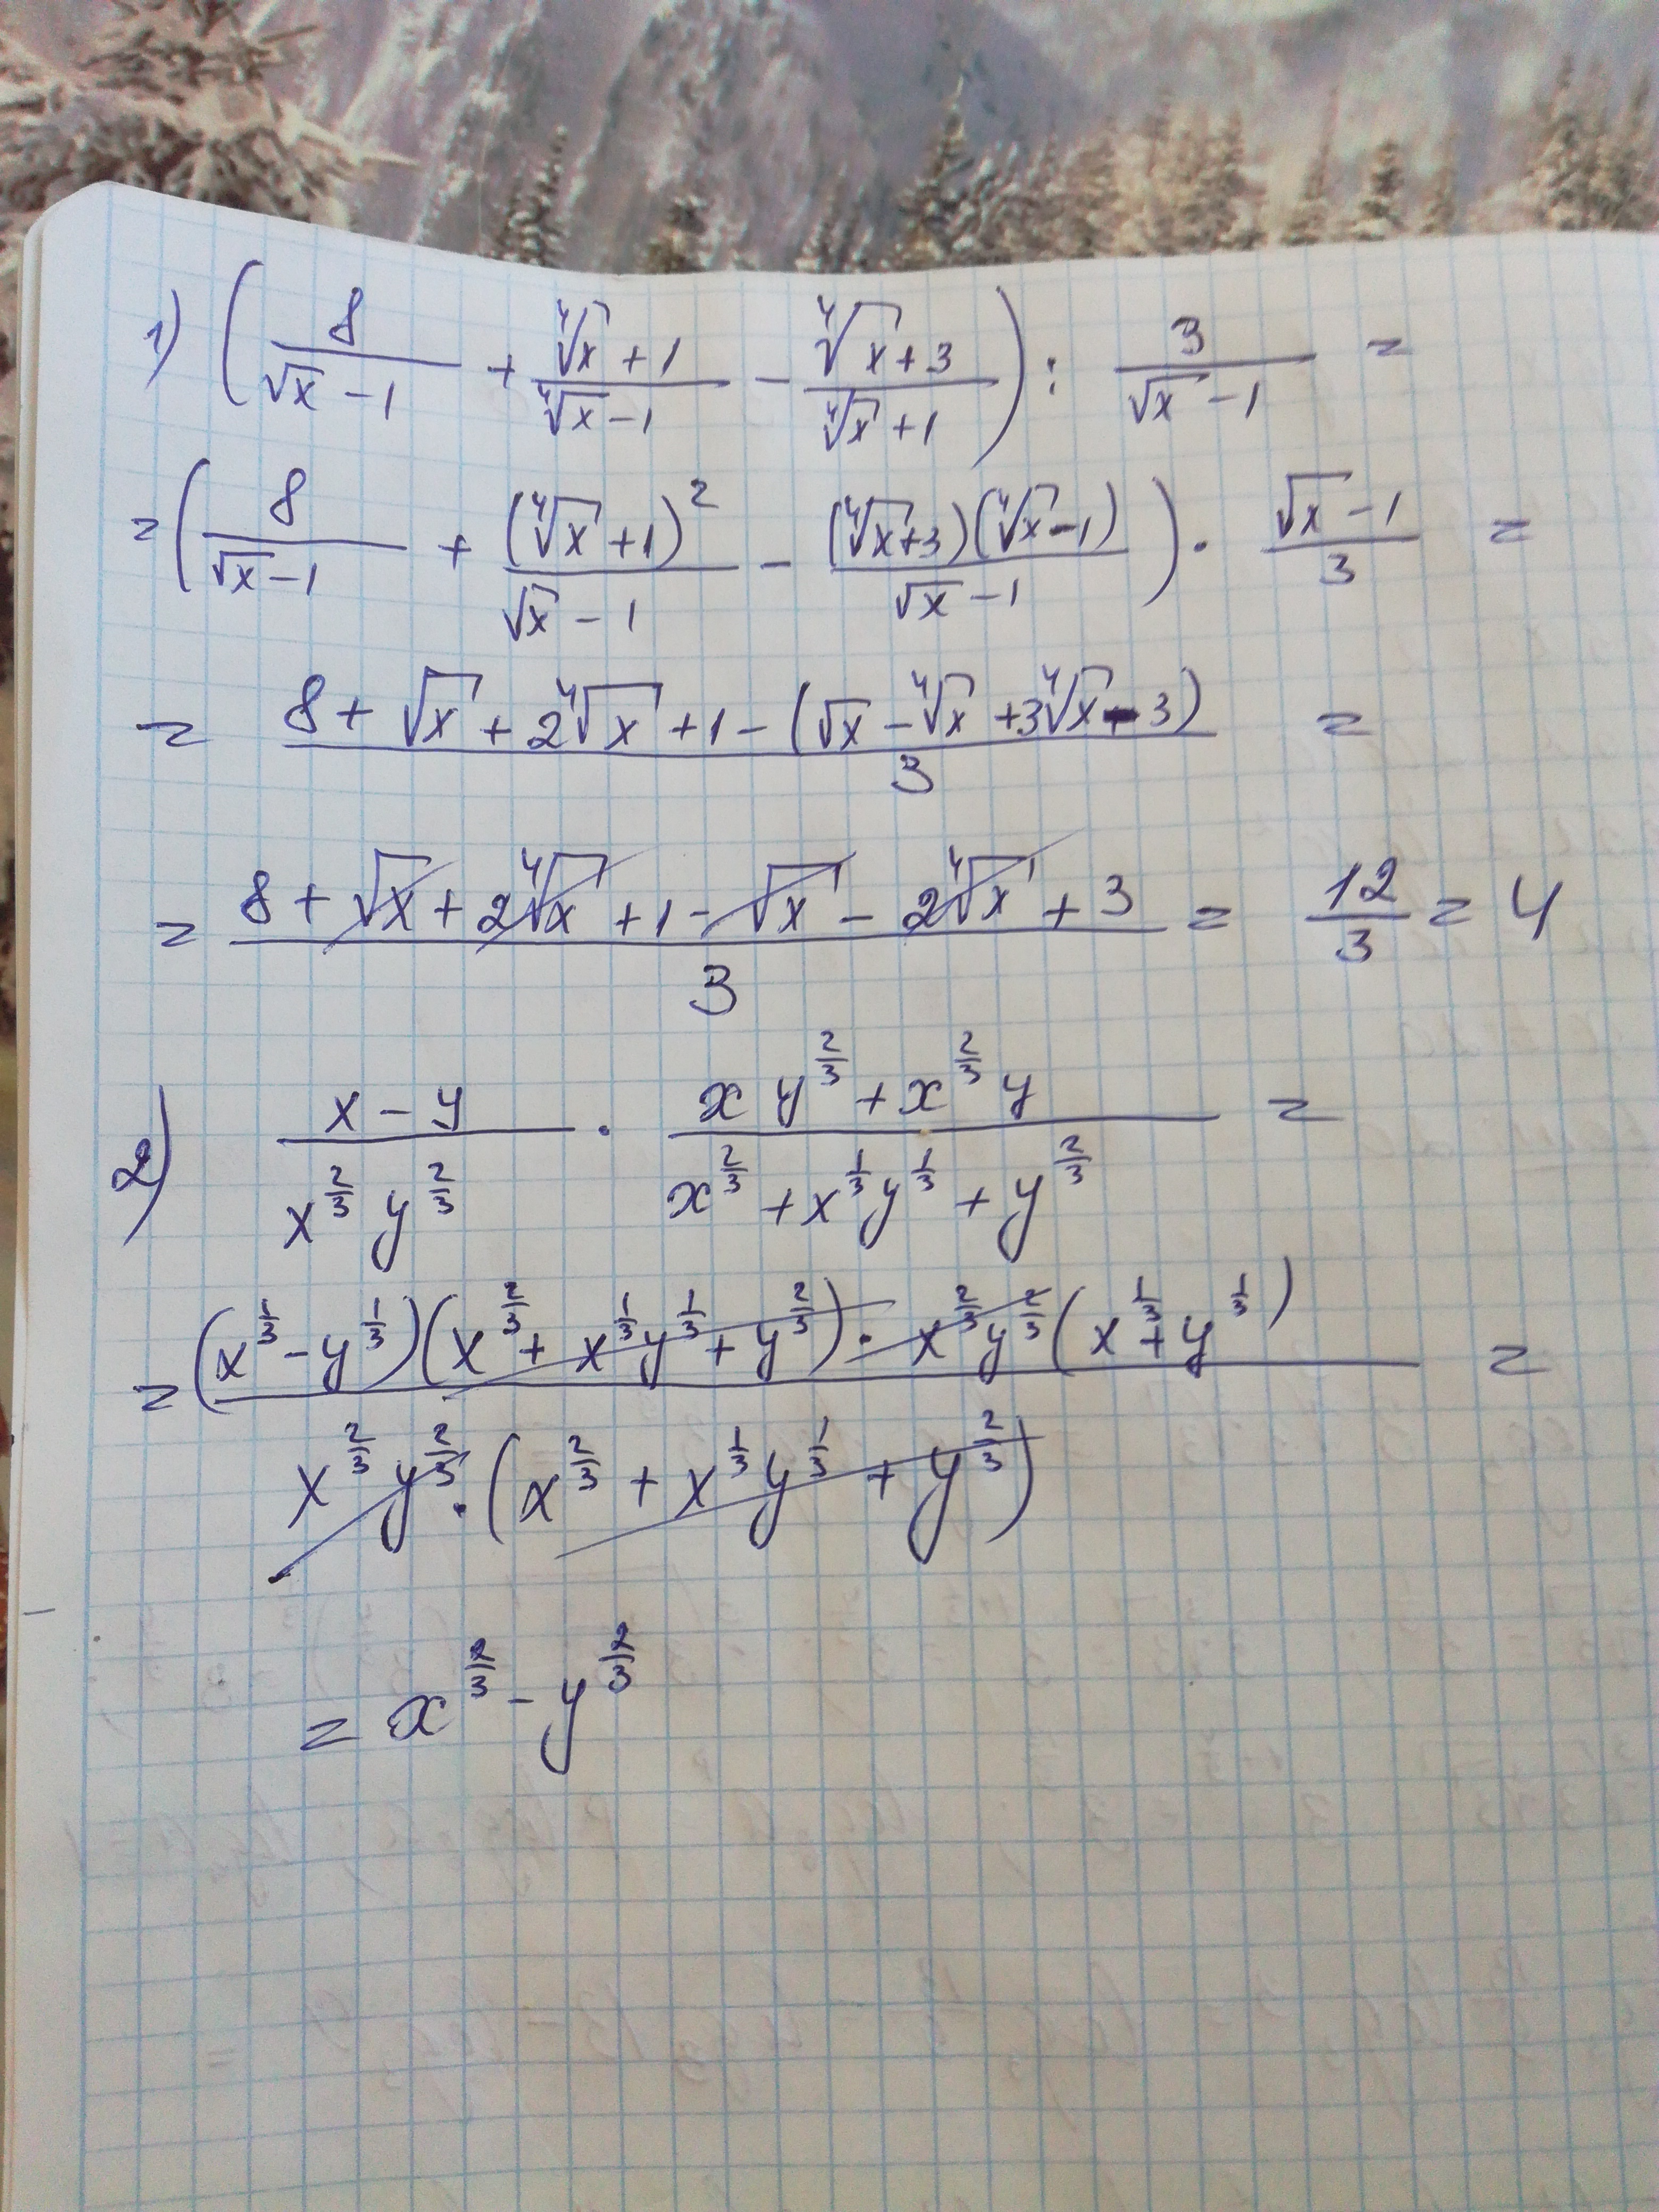 1) (8/(√x - 1) + (∜x + 1)/(∜x - 1) - (∜x + 3)/(∜x + 1)) : 3/(√x - 1) =
= (8/(√x - 1) + (∜x + 1)²/(√x - 1) - (∜x + 3)(∜x - 1)/(√x - 1)) · (√x - 1)/3 =
= (8 + √x + 2∜x + 1 - (√x - ∜x + 3∜x - 3))/3 =
= (8 + √x + 2∜x + 1 - √x - 2∜x + 3)/3 = 12/3 = 4
2) (x - y)/(x^(2/3) y^(2/3)) · (x y^(2/3) + x^(2/3) y)/(x^(2/3) + x^(1/3) y^(1/3) + y^(2/3)) =
= ((x^(1/3) - y^(1/3))(x^(2/3) + x^(1/3) y^(1/3) + y^(2/3)) · x^(2/3) y^(2/3) (x^(1/3) + y^(1/3)))/(x^(2/3) y^(2/3) · (x^(2/3) + x^(1/3) y^(1/3) + y^(2/3))) =
= x^(2/3) - y^(2/3)